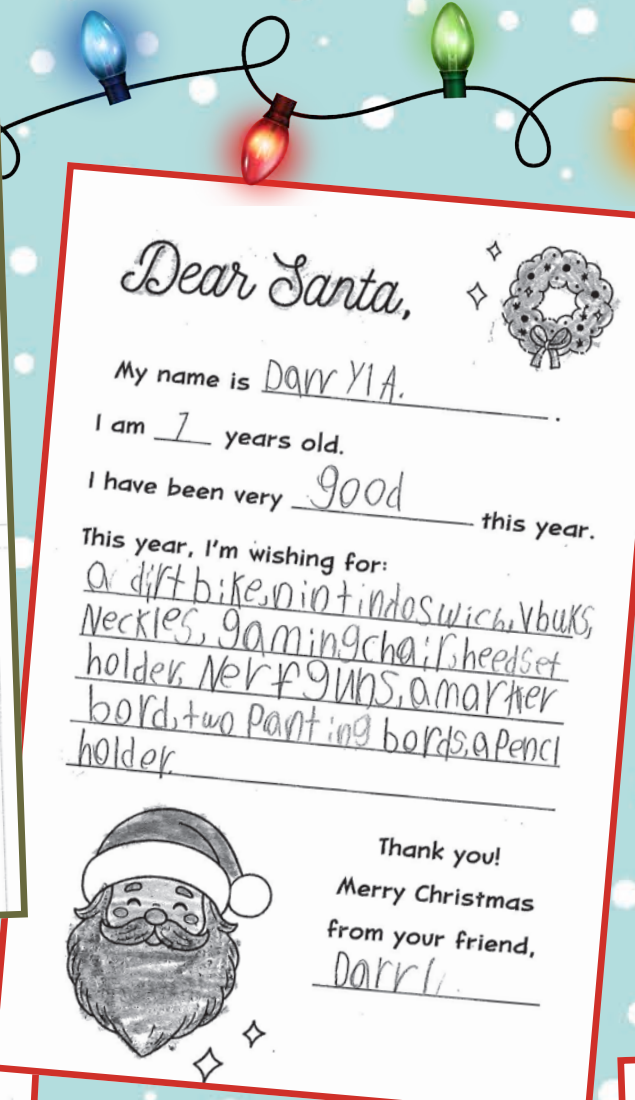 Dear Santa,
My name is Darryl A.
I am 7 years old.
I have been very good this year.
This year, I'm wishing for:
a dirt bike, nintindoswich, Vbuks,
Neckles, gaming chair, heedset
holder, Nerf guns, a marker
bord, two panting bords, a pencl
holder.
Thank you!
Merry Christmas
from your friend,